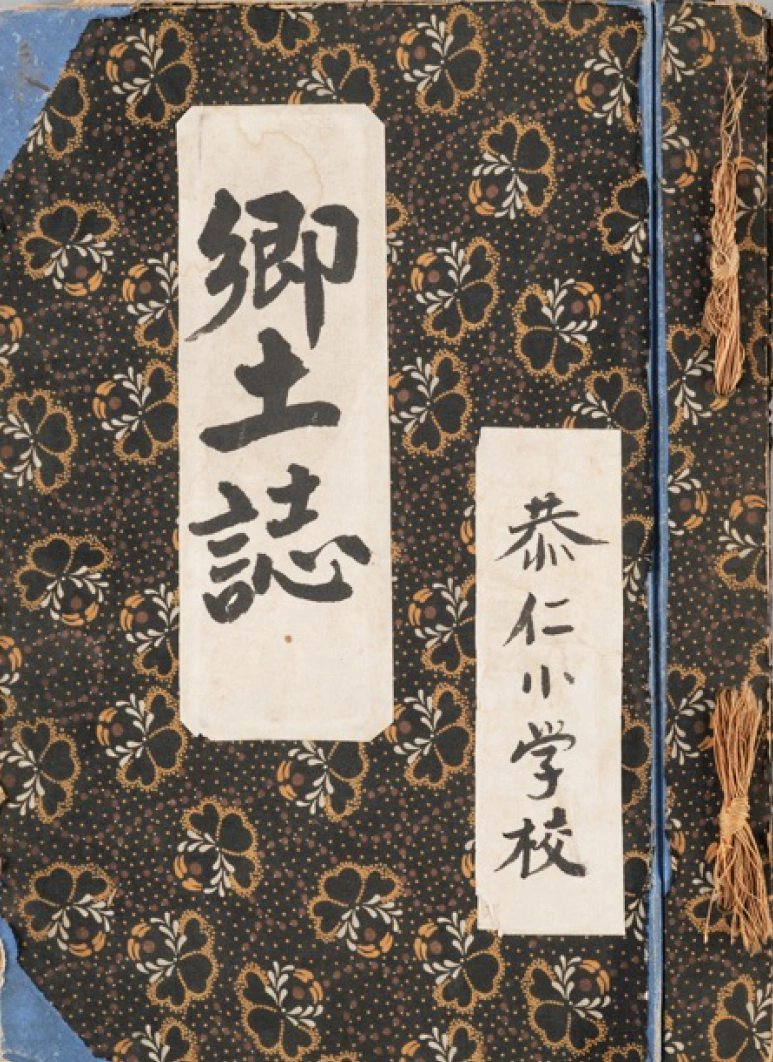 郷土誌
恭仁小学校